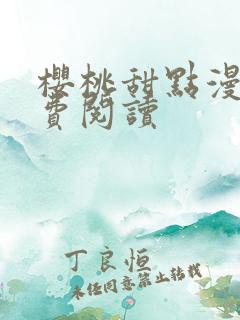 櫻桃甜點漫
費閱讀
丁良恒
未经同意禁止转载